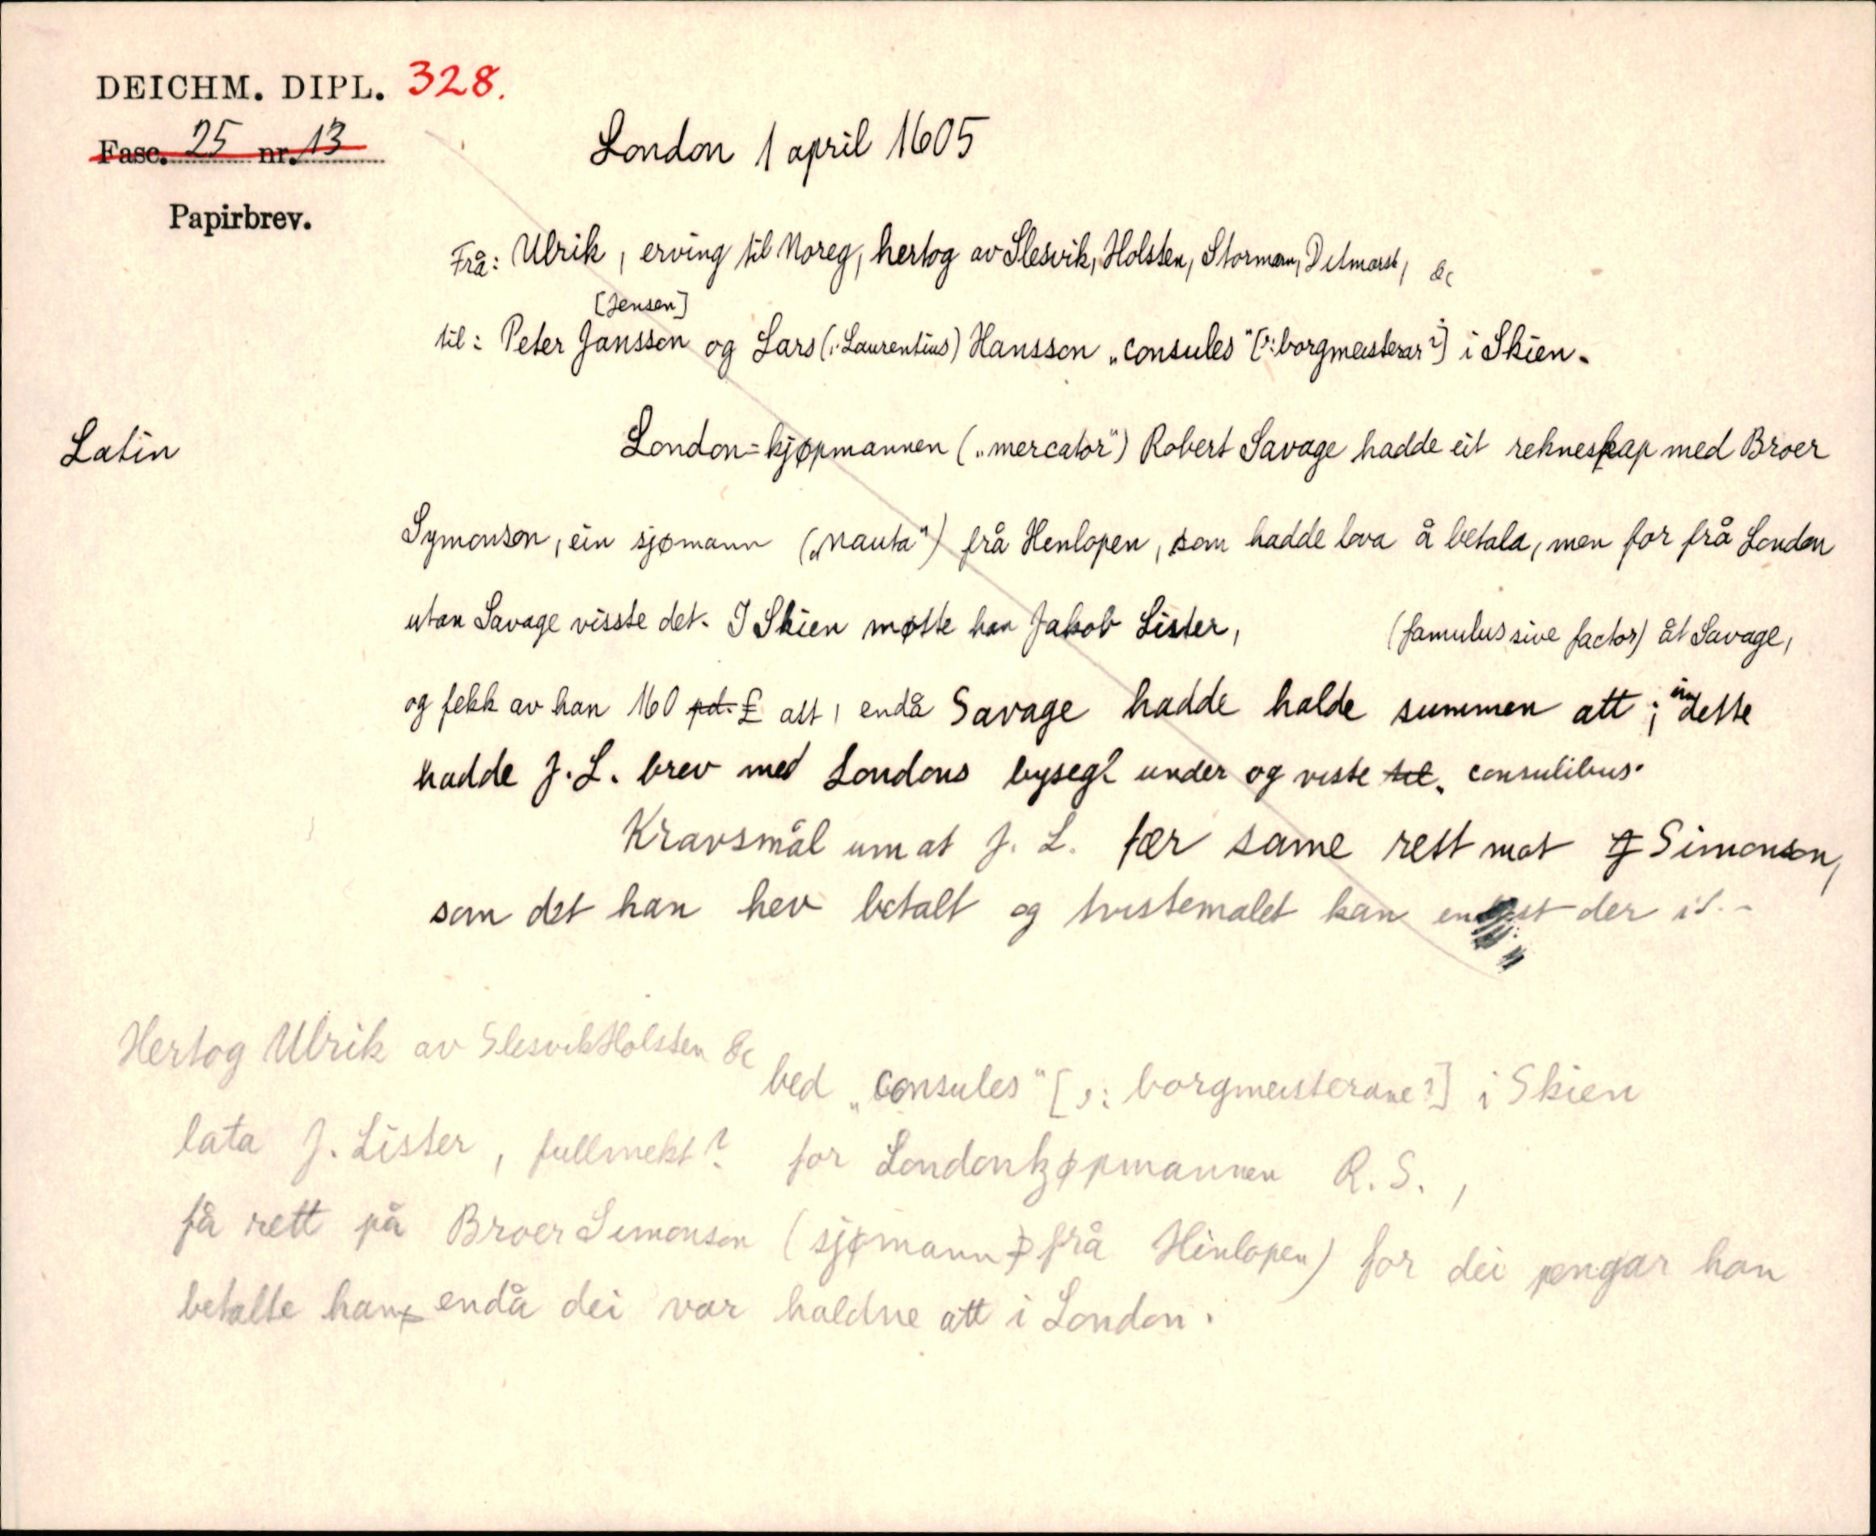 DEICHM. DIPL. 328.
Fasc. 25 nr. 13
London 1 april 1605
Papirbrev.
Frå: Ulrik, erving til Noreg, hertog av Slesvik, Holsten, Storman, Ditmarsk, &c
[Jensen]
til: Peter Jansson og Lars (: Laurentius) Hansson „consules" [ɔ: borgmeisterar?] i Skien.
Latin
London=kjøpmannen („mercator") Robert Savage hadde eit rekneskap med Broer
Symonson, ein sjømann („nauta") frå Henlopen, som hadde lova å betala, men for frå London
utan Savage visste det. I Skien møtte han Jakob Lister, (famulus sive factor) åt Savage,
og fekk av han 160 pd. £ att, endå Savage hadde halde summen att; um dette
hadde J. L. brev med Londons bysegl under og viste consulibus.
Kravsmål um at J. L. fær same rett mot Simonson,
som det han hev betalt og tvistemålet kan endast der
Hertog Ulrik av Slesvik Holsten &c
bed „consules" [ɔ: borgmeisterane?] i Skien
lata J. Lister, fullmekt? for Londonkjøpmannen R. S.,
få rett på Broer Simonson (sjømann frå Hinlopen) for dei pengar han
betalte han, endå dei var haldne att i London.